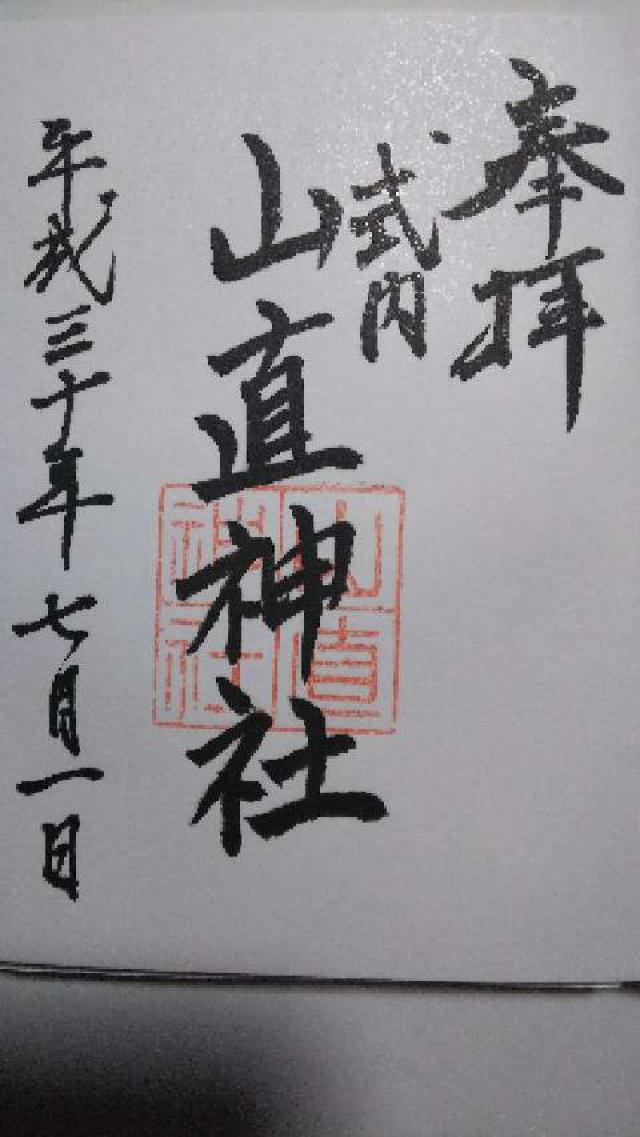 奉拝
式内
山直神社
山直神社
平成三十年七月一日